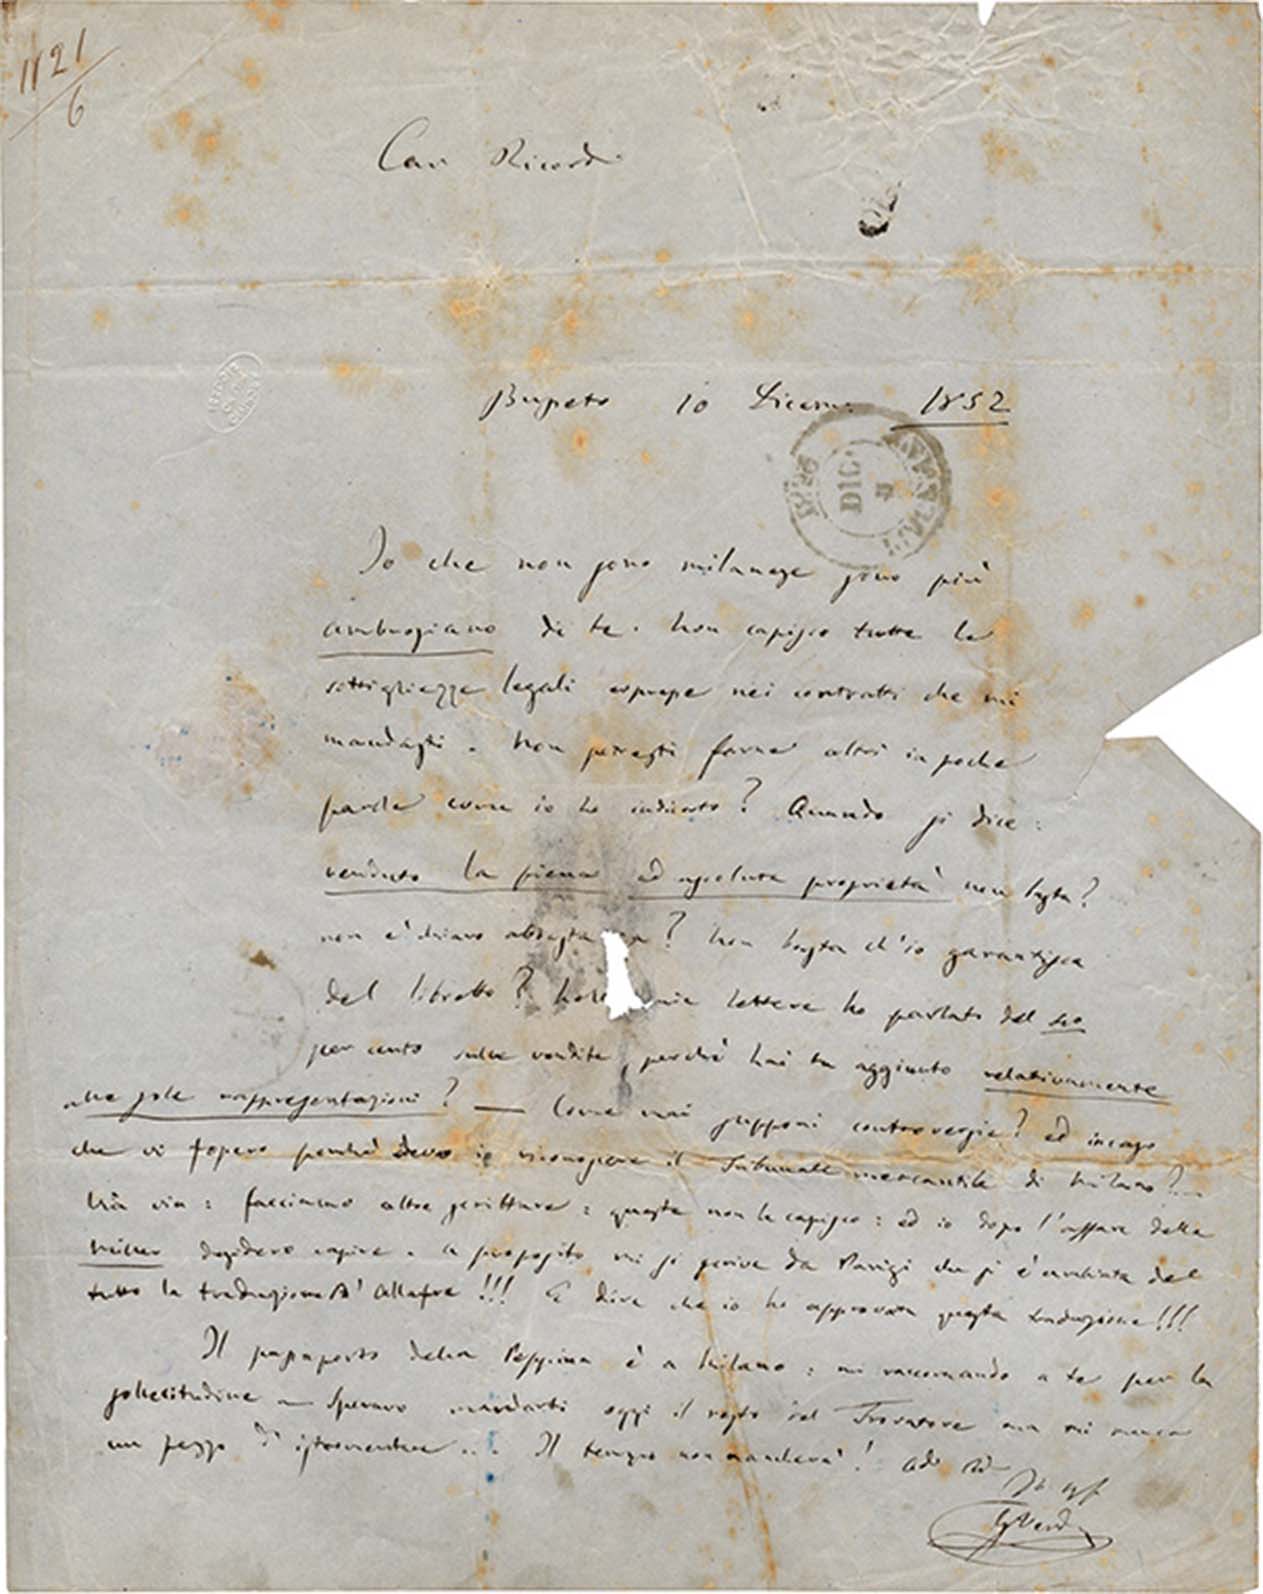 1821
6
Caro Ricordi
Busseto 10 Dicem. 1852
DIC.
Io che non sono milanese sono più
ambrosiano di te. Non capisco tutte le
sottigliezze legali espresse nei contratti che mi
mandasti. Non potresti farne altri in poche
parole come io ho indicato? Quando si dice:
venduto la piena ed assoluta proprietà non basta?
non è chiaro abbasta? Non basta ch'io garantisca
del libretto? mia lettera ho parlato del
per cento sulle vendite, perchè hai tu aggiunto relativamente
alle sole rappresentazioni? — Come mai supponi controversie? ed in caso
che vi fossero perchè devo io riconoscere il Tribunale mercantile di Milano? —
Via via: facciamo altre scritture: queste non le capisco: ed io dopo l'affare della
desidero capire. A proposito mi si scrive da Parigi che si è cambiata del
tutto la traduzione !!! E dire che io ho approvata questa traduzione!!!
Il passaporto della Peppina è a Milano: mi raccomando a te per la
sollecitudine — Speravo mandarti oggi il resto del Trovatore ma mi manca
un pezzo d'istromentare... Il tempo non mancherà! Ad
G Verdi